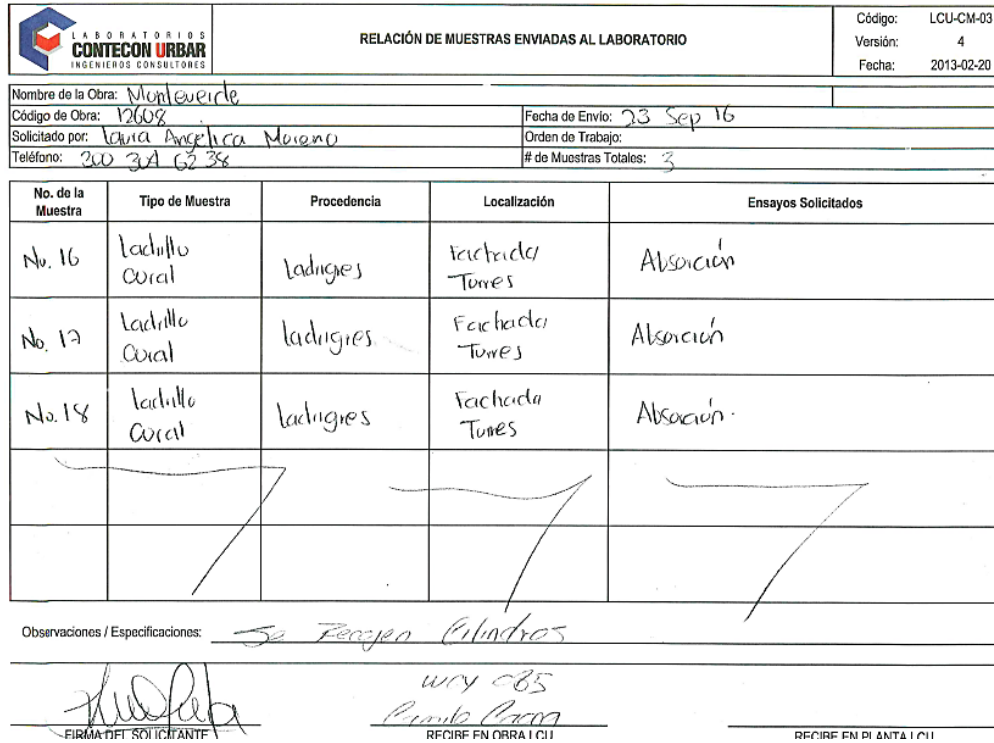 LABORATORIOS
CONTECON URBAR
INGENIEROS CONSULTORES
RELACIÓN DE MUESTRAS ENVIADAS AL LABORATORIO
Código: LCU-CM-03
Versión: 4
Fecha: 2013-02-20
Nombre de la Obra: Monteverde
Código de Obra: 12608
Fecha de Envío: 23 Sep 16
Solicitado por: Laura Angelica Moreno
Orden de Trabajo:
Teléfono: 300 304 62 38
# de Muestras Totales: 3
No. de la Muestra Tipo de Muestra Procedencia Localización Ensayos Solicitados
No. 16 Ladrillo Coral Ladrigres Fachada Torres Absorción
No. 17 Ladrillo Coral Ladrigres Fachada Torres Absorción
No. 18 Ladrillo Coral Ladrigres Fachada Torres Absorción.
Observaciones / Especificaciones: Se Recojen Cilindros
FIRMA DEL SOLICITANTE
Camilo
RECIBE EN OBRA LCU
RECIBE EN PLANTA LCU